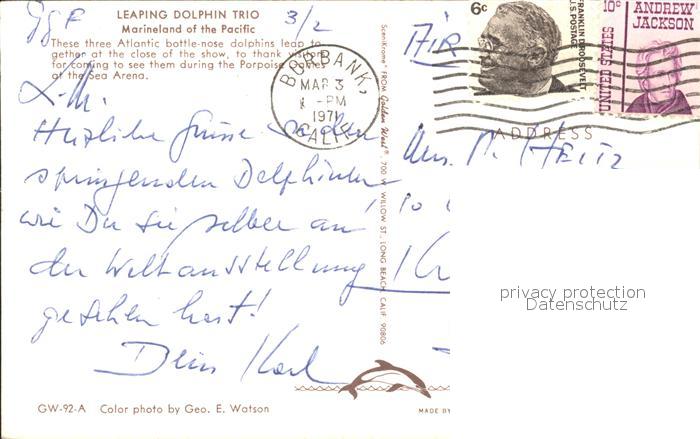 LEAPING DOLPHIN TRIO 3/2
Marineland of the Pacific
These three Atlantic bottle-nose dolphins leap to-
gether at the close of the show, to thank visitors
for coming to see them during the Porpoise Games
at the Sea Arena.
L. M.
Herzliche Grüsse von den
springenden Delphinen
wie Du sie selber an
der Weltausstellung
gesehen hast!
Dein Karl
GW-92-A Color photo by Geo. E. Watson
SceniKrome® FROM Golden West® 700 W. WILLOW ST., LONG BEACH, CALIF. 90806
BURBANK,
MAR 3
PM
1971
CALIF
AIR
6c U.S. POSTAGE
FRANKLIN D. ROOSEVELT
10c UNITED STATES
ANDREW
JACKSON
ADDRESS
HEITZ
privacy protection
Datenschutz
MADE BY